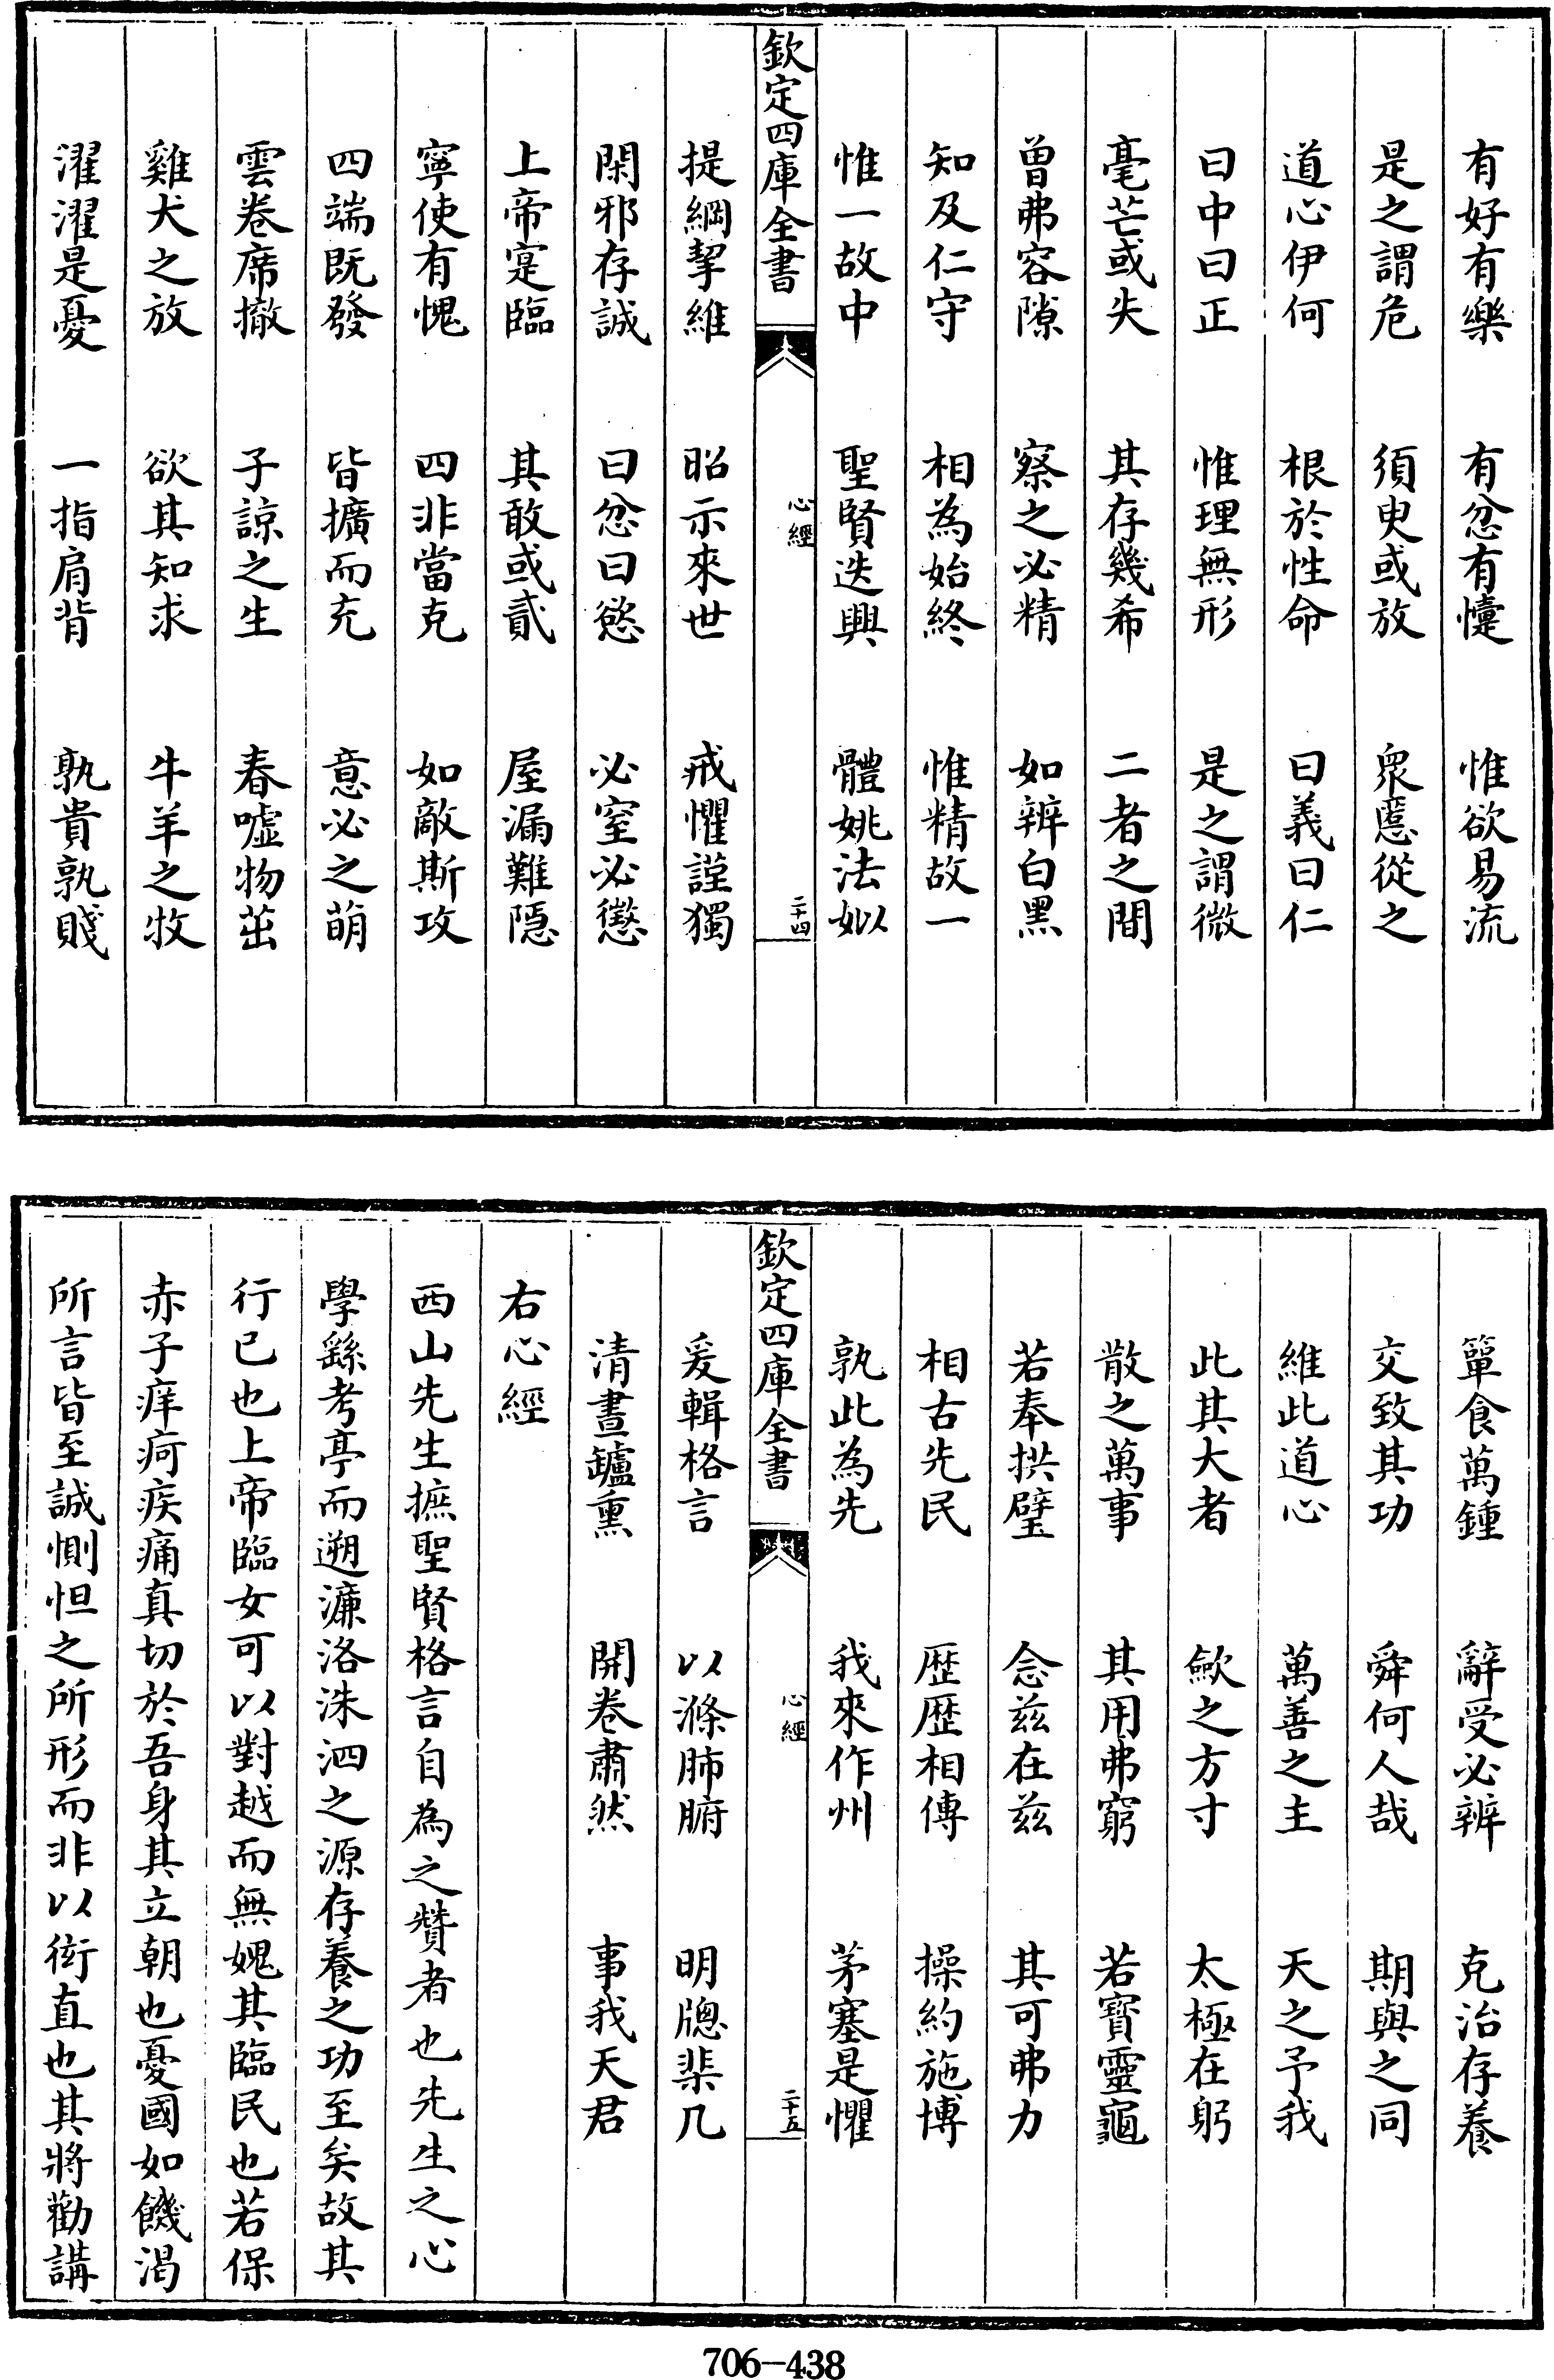 有好有樂　有忿有懥　惟欲易流
是之謂危　須臾或放　衆慝從之
道心伊何　根於性命　曰義曰仁
曰中曰正　惟理無形　是之謂微
毫芒或失　其存幾希　二者之間
曾弗容隙　察之必精　如辨白黑
知及仁守　相為始終　惟精故一
惟一故中　聖賢迭興　體姚法姒
欽定四庫全書　心經　二十四
提綱挈維　昭示來世　戒懼謹獨
閑邪存誠　曰忿曰慾　必窒必懲
上帝寔臨　其敢或貳　屋漏難隱
寧使有愧　四非當克　如敵斯攻
四端既發　皆擴而充　意必之萌
雲卷席撤　子諒之生　春噓物茁
雞犬之放　欲其知求　牛羊之牧
濯濯是憂　一指肩背　孰貴孰賤
簞食萬鍾　辭受必辨　克治存養
交致其功　舜何人哉　期與之同
維此道心　萬善之主　天之予我
此其大者　歛之方寸　太極在躬
散之萬事　其用弗窮　若寶靈龜
若奉拱璧　念兹在兹　其可弗力
相古先民　歴歴相傳　操約施博
孰此為先　我來作州　茅塞是懼
欽定四庫全書　心經　二十五
爰輯格言　以滌肺腑　明牕棐几
清晝鑪熏　開卷肅然　事我天君
右心經
西山先生摭聖賢格言自為之贊者也先生之心
學繇考亭而遡濂洛洙泗之源存養之功至矣故其
行已也上帝臨女可以對越而無媿其臨民也若保
赤子痒疴疾痛真切於吾身其立朝也憂國如饑渴
所言皆至誠惻怛之所形而非以衒直也其將勸講
706—438